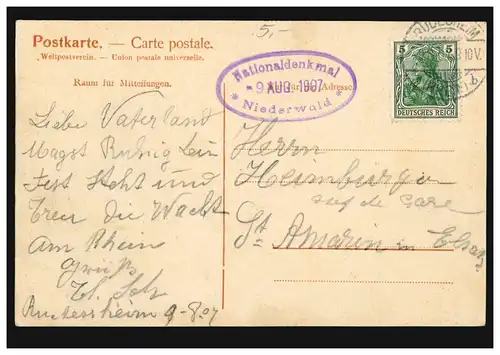 5,-
Postkarte. — Carte postale.
Weltpostverein. — Union postale universelle.
Raum für Mitteilungen.
Nationaldenkmal
- 9 AUG. 1907
* Niederwald *
Adresse
RÜDESHEIM
10 V.
5 5
DEUTSCHES REICH
Liebe Vaterland
Magst Ruhig Sein
Fest Steht und
Treu die Wacht
Am Rhein
Gruß
Herrn
Heimburger
rue de Gare
St Amarin in Elsaß
9-8.07